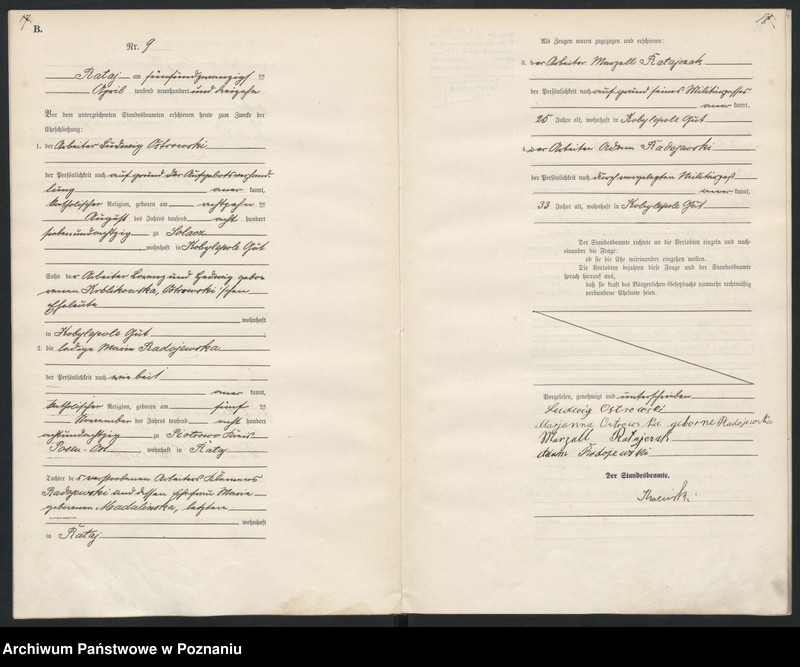 17
B.
Nr. 9
Rataj am fünfundzwanzigsten
April tausend neunhundert und dreizehn
Vor dem unterzeichneten Standesbeamten erschienen heute zum Zwecke der
Eheschließung:
1. der Arbeiter Ludwig Ostrowski
der Persönlichkeit nach auf Grund der Aufgebotsverhand-
lung anerkannt,
katholischer Religion, geboren am achtzehnten
August des Jahres tausend acht hundert
siebenundachtzig zu Solacz
, wohnhaft in Kobylepole Gut
Sohn der Arbeiter Lorenz und Hedwig gebo-
renen Królikowska, Ostrowski'schen
Eheleute
wohnhaft
in Kobylepole Gut
2. die ledige Marie Radojewska
der Persönlichkeit nach wie bei 1
anerkannt,
katholischer Religion, geboren am fünften
November des Jahres tausend acht hundert
achtundachtzig zu Piotrowo Kreis
Posen-Ost, wohnhaft in Rataj
Tochter des verstorbenen Arbeiters
Radojewski und dessen Ehefrau Marie
geborenen Madalinska, letztere
wohnhaft
in Rataj
18
Als Zeugen waren zugezogen und erschienen:
3. der Arbeiter Marzell Ratajczak
der Persönlichkeit nach auf Grund seines Militärpasses
anerkannt,
25 Jahre alt, wohnhaft in Kobylepole Gut
4. der Arbeiter Adam Radojewski
der Persönlichkeit nach durch vorgelegten Militärpaß
anerkannt,
33 Jahre alt, wohnhaft in Kobylepole Gut
Der Standesbeamte richtete an die Verlobten einzeln und nach-
einander die Frage:
ob sie die Ehe miteinander eingehen wollen.
Die Verlobten bejahten diese Frage und der Standesbeamte
sprach hierauf aus,
daß sie kraft des Bürgerlichen Gesetzbuchs nunmehr rechtmäßig
verbundene Eheleute seien.
Vorgelesen, genehmigt und unterschrieben
Ludwig Ostrowski
Marjanna Ostrowska geborne Radojewska
Marzell Ratajczak
Adam Radojewski
Der Standesbeamte.
Archiwum Państwowe w Poznaniu